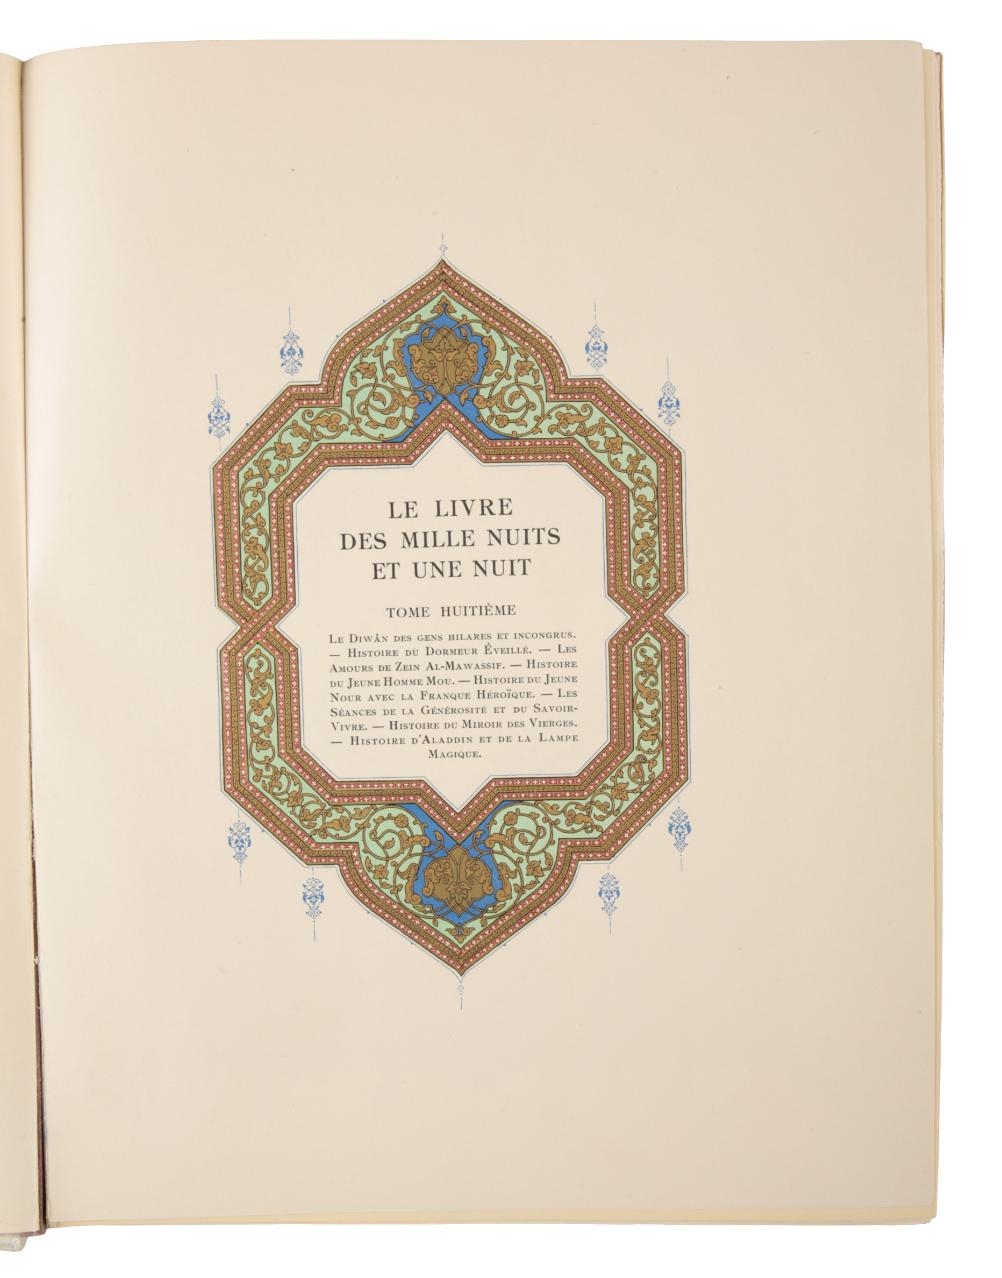 LE LIVRE
DES MILLE NUITS
ET UNE NUIT
TOME HUITIÈME
Le Diwân des gens hilares et incongrus.
— Histoire du Dormeur Éveillé. — Les
Amours de Zein Al-Mawassif. — Histoire
du Jeune Homme Mou. — Histoire du Jeune
Nour avec la Franque Héroïque. — Les
Séances de la Générosité et du Savoir-
Vivre. — Histoire du Miroir des Vierges.
— Histoire d'Aladdin et de la Lampe
Magique.